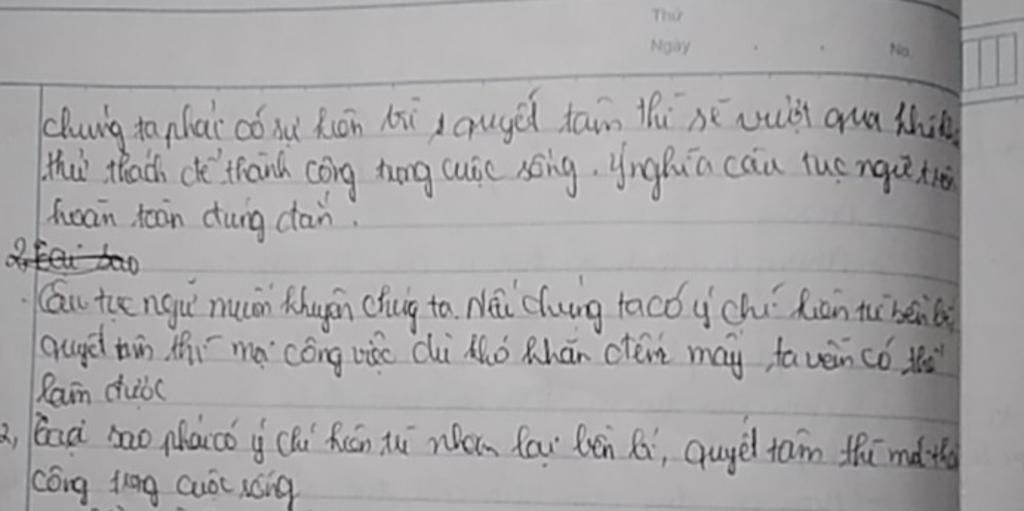 Thứ
Ngày No.
chúng ta phải có sự kiên trì, quyết tâm thì sẽ vượt qua
thử thách để thành công trong cuộc sống. Ý nghĩa câu tục ngữ trên
hoàn toàn đúng đắn.
2, Tại sao
Câu tục ngữ muốn khuyên chúng ta. Nếu chúng ta có ý chí kiên trì bền bỉ
quyết tâm thì mọi công việc dù khó khăn đến mấy, ta vẫn có thể
làm được
2, Tại sao phải có ý chí kiên trì nhẫn lại bền bỉ, quyết tâm thì mới
công trong cuộc sống